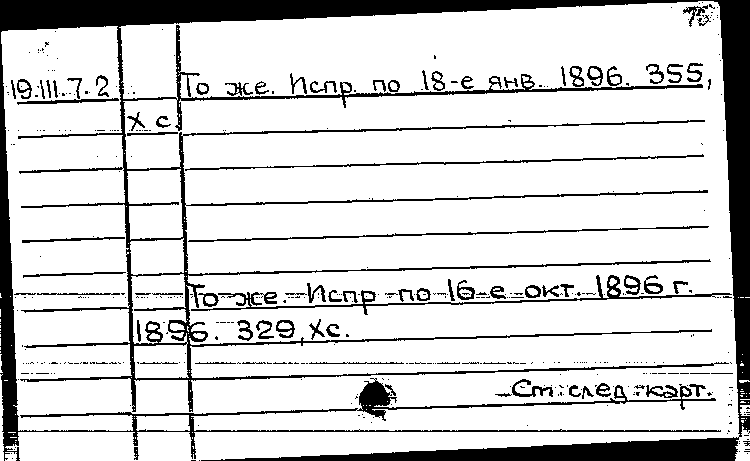 75
19.III.7.2 То же. Испр. по 18-е янв. 1896. 355,
X с.
То же. Испр по 16-е окт. 1896 г.
1896. 329, Xс.
См. след. карт.